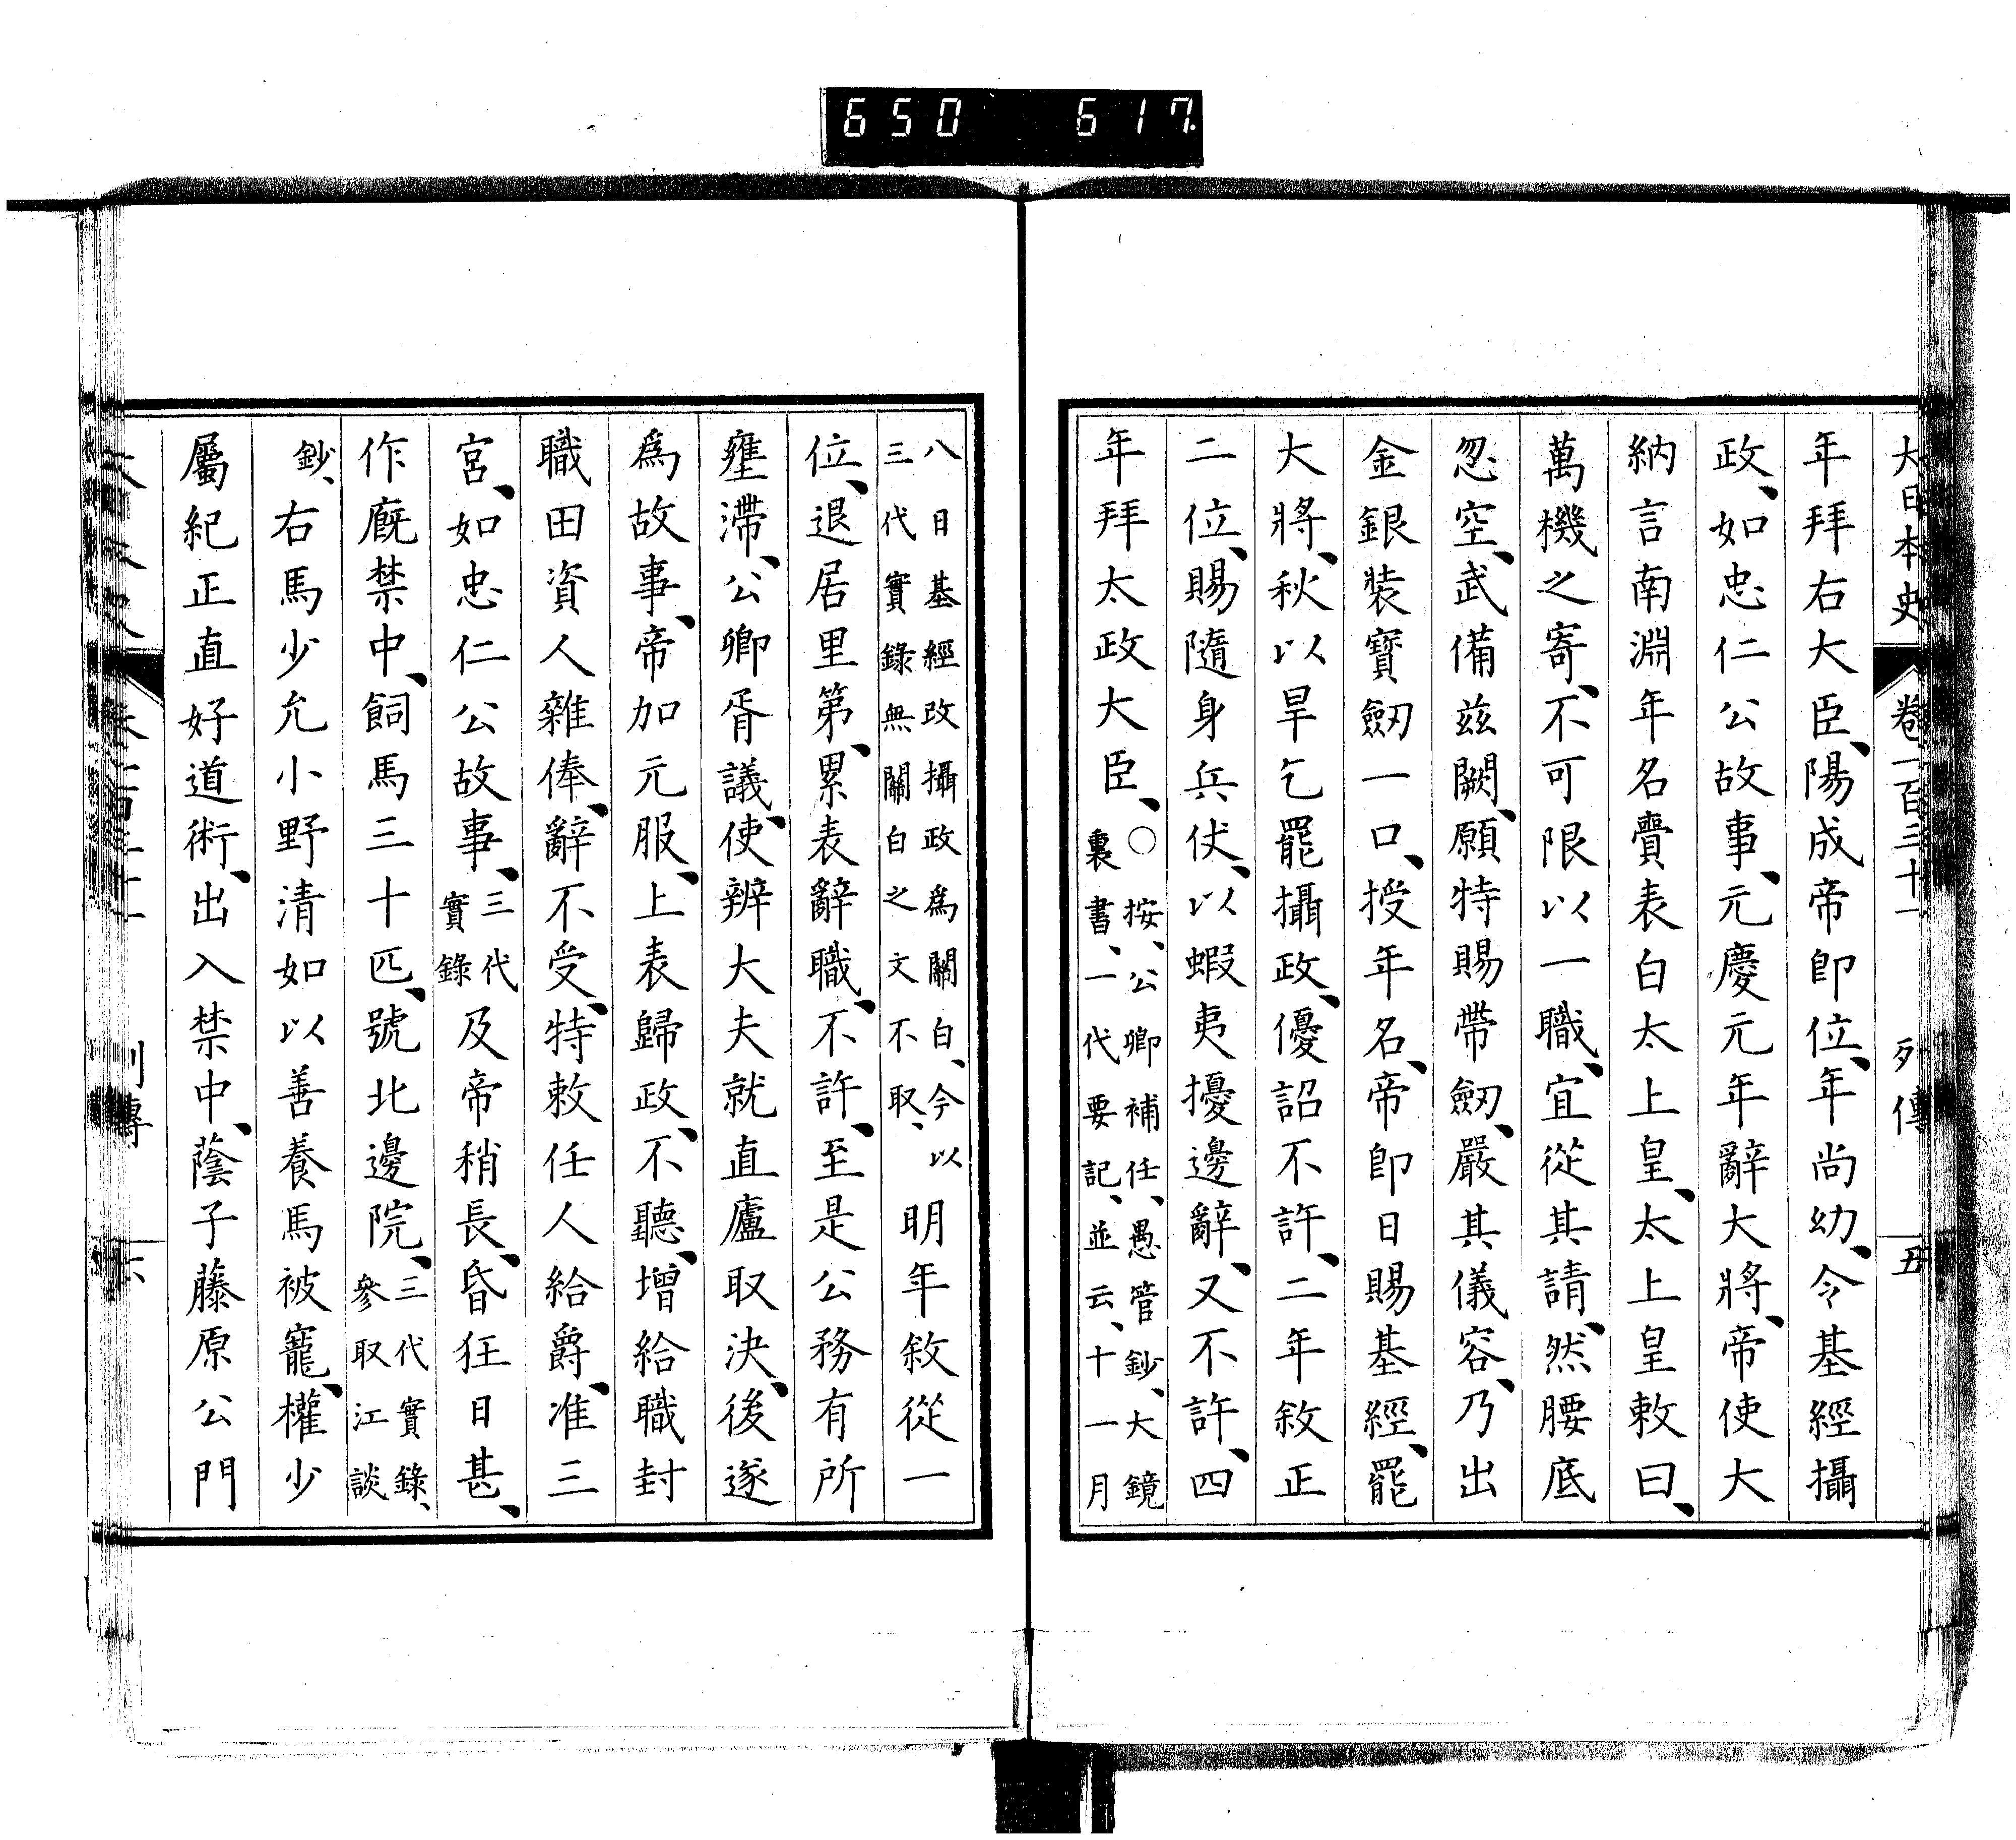 650 617.
大日本史 卷一百三十一 列傳 五
年拜右大臣、陽成帝卽位、年尚幼、令基經攝
政、如忠仁公故事、元慶元年辭大將、帝使大
納言南淵年名賷表白太上皇、太上皇敕曰、
萬機之寄、不可限以一職、宜從其請、然腰底
忽空、武備兹闕、願特賜帶劒、嚴其儀容、乃出
金銀裝寶劒一口、授年名、帝卽日賜基經、罷
大將、秋以旱乞罷攝政、優詔不許、二年敘正
二位、賜隨身兵仗、以蝦夷擾邊辭、又不許、四
年拜太政大臣、
○按、公卿補任、愚管鈔、大鏡
裏書、一代要記、並云、十一月
八日基經攺攝政爲關白、今以
三代實錄無關白之文不取、
明年敘從一
位、退居里第、累表辭職、不許、至是公務有所
壅滯、公卿胥議、使辨大夫就直廬取決、後遂
爲故事、帝加元服、上表歸政、不聽、增給職封
職田資人雜俸、辭不受、特敕任人給爵、准三
宮、如忠仁公故事、
三代
實錄
及帝稍長、昏狂日甚、
作廐禁中、飼馬三十匹、號北邊院、
三代實錄、
參取江談
鈔、
右馬少允小野清如以善養馬被寵、權少
屬紀正直好道術、出入禁中、蔭子藤原公門
列傳